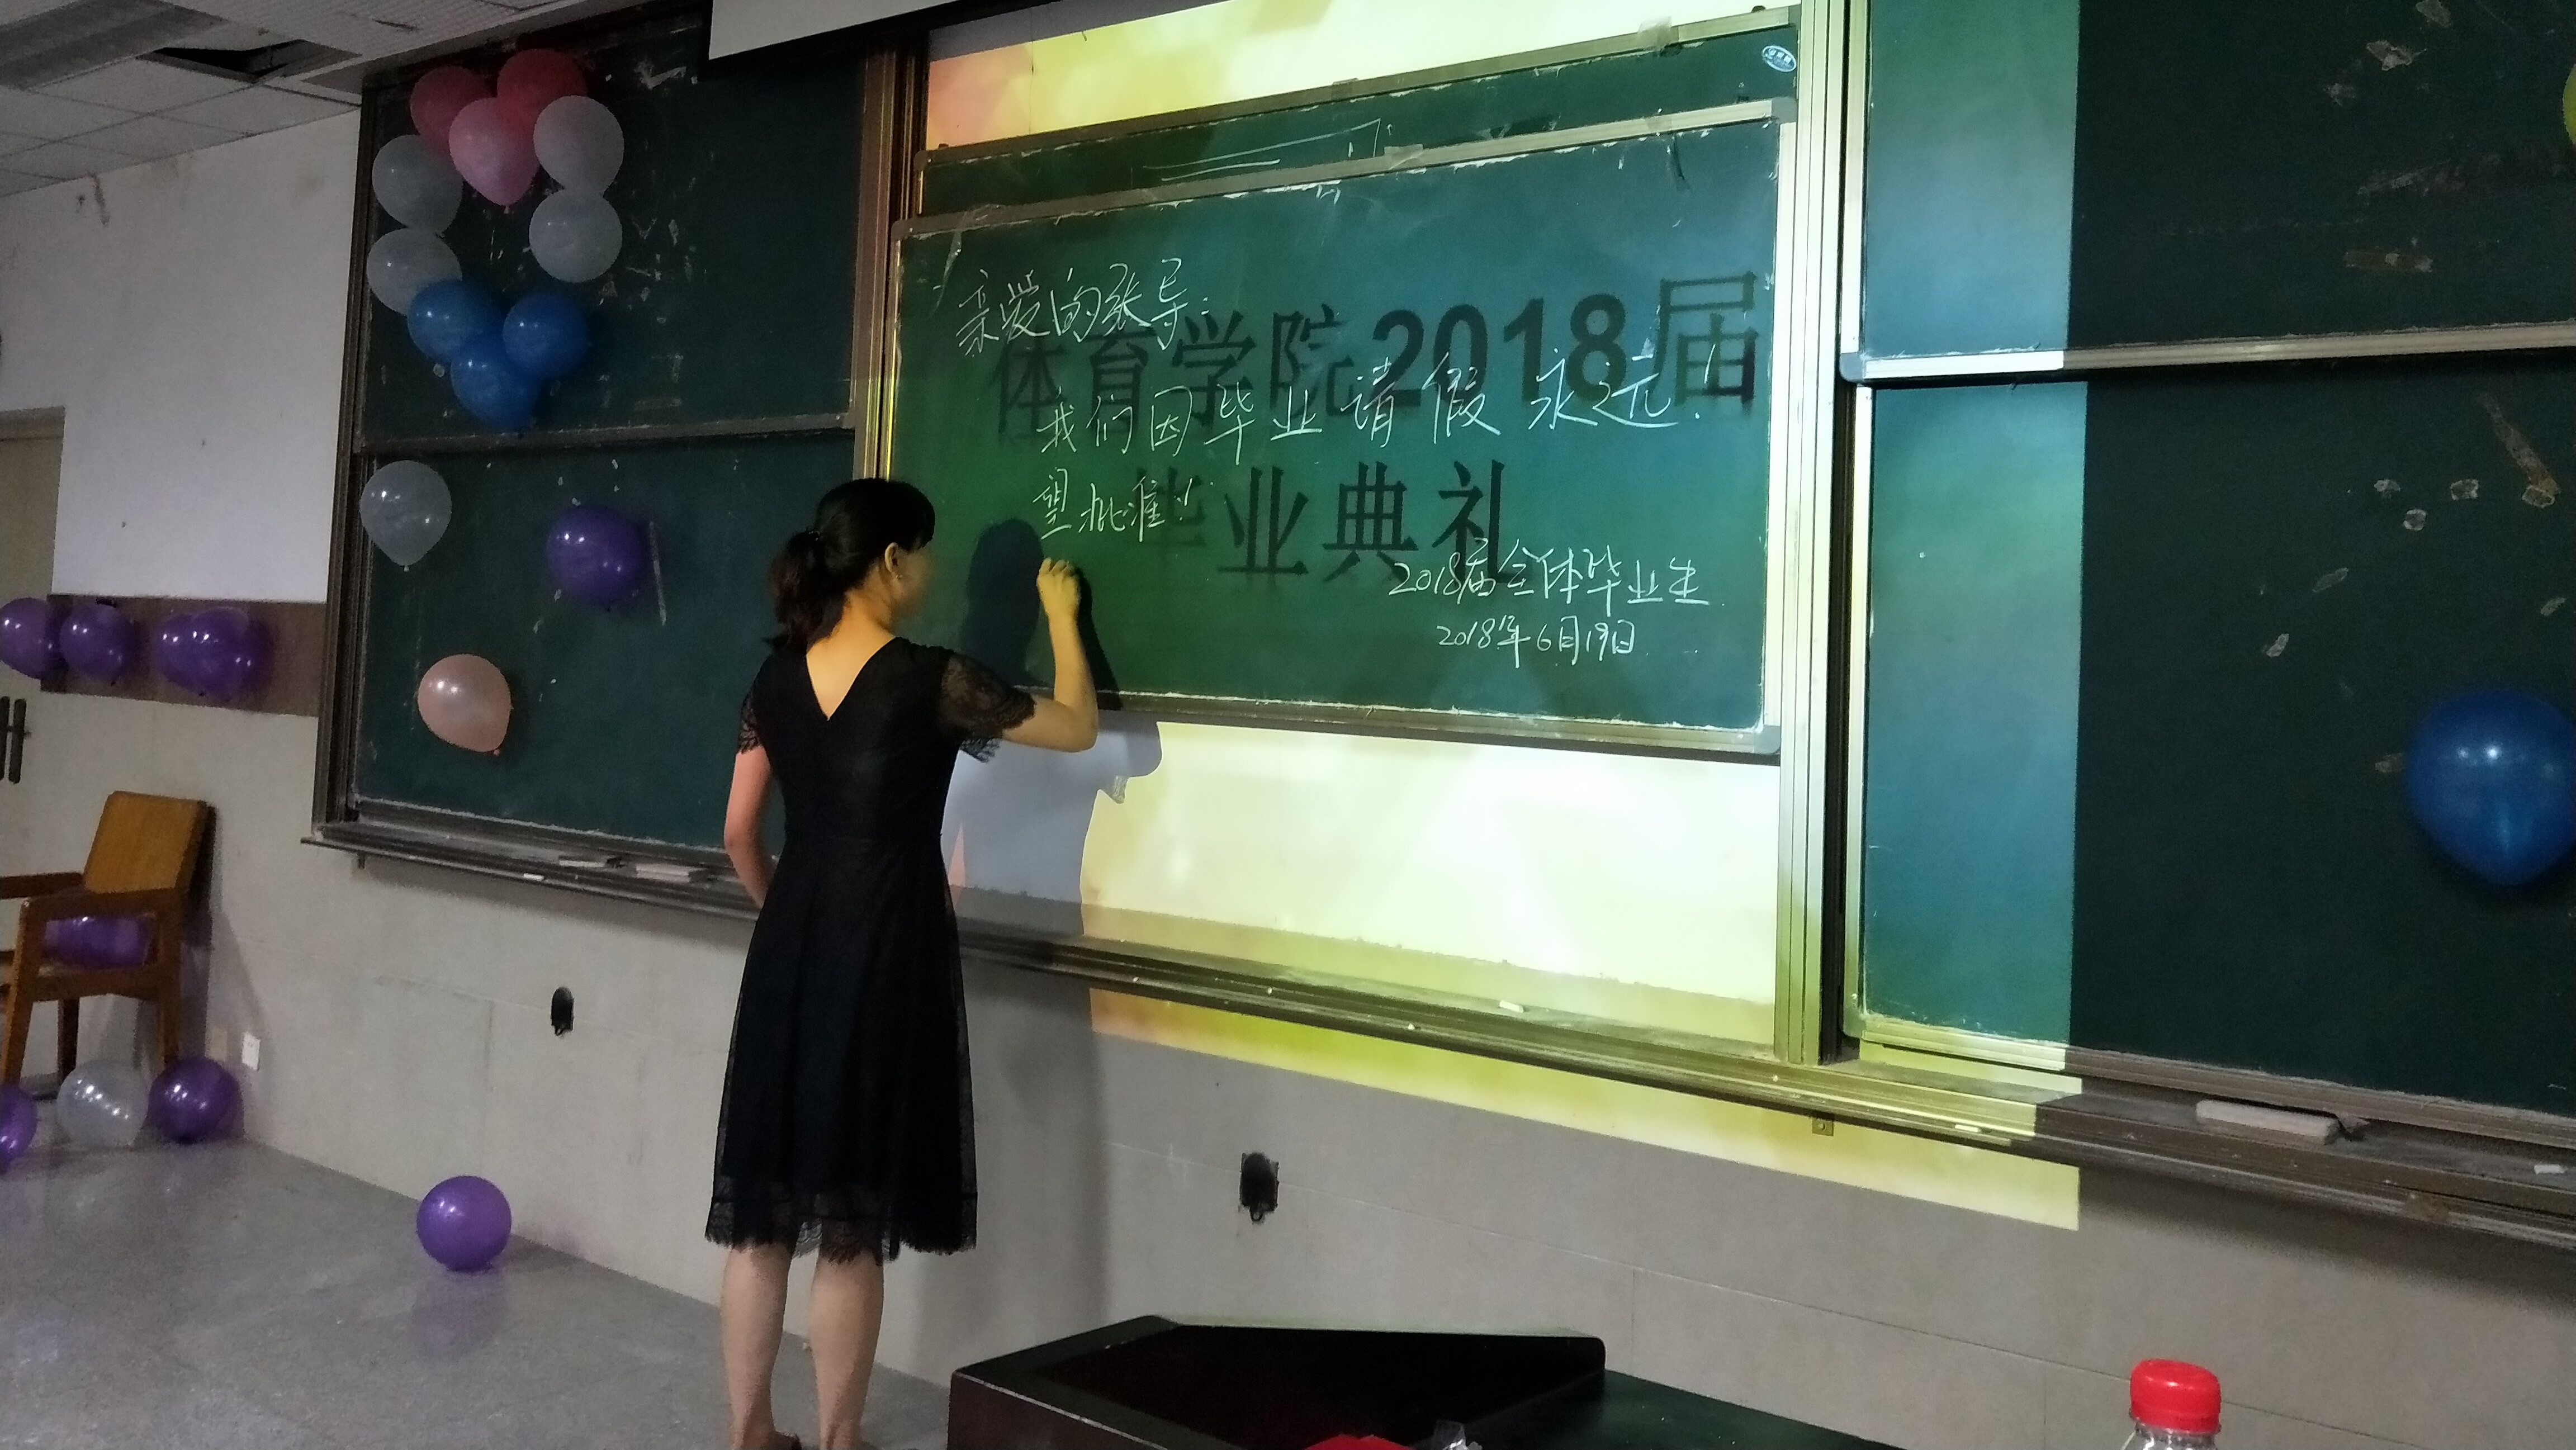 亲爱的张导：
体育学院2018届
我们因毕业请假永远！
毕业典礼
望批准！
2018届全体毕业生
2018年6月19日